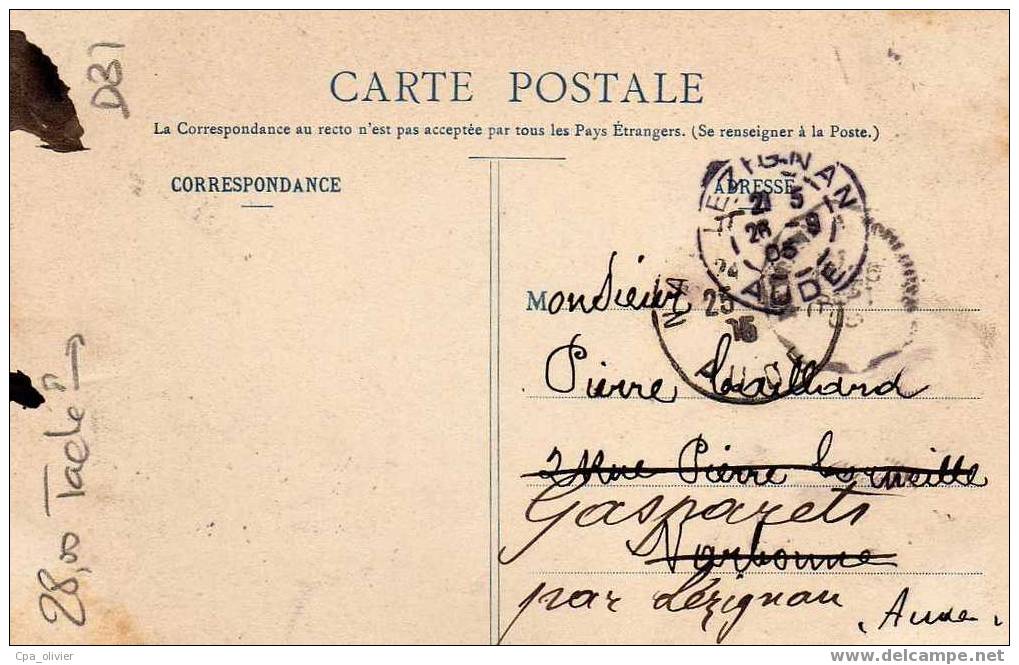 DB1
CARTE POSTALE
La Correspondance au recto n'est pas acceptée par tous les Pays Étrangers. (Se renseigner à la Poste.)
CORRESPONDANCE
ADRESSE
LEZIGNAN
21 5
26 -9
05
AUDE
25
AUDE
Monsieur
Pierre
2 Rue Pierre Corneille
Gasparets
Narbonne
par Lézignan
Aude
28,00 Taché
Cpa_olivier
www.delcampe.net